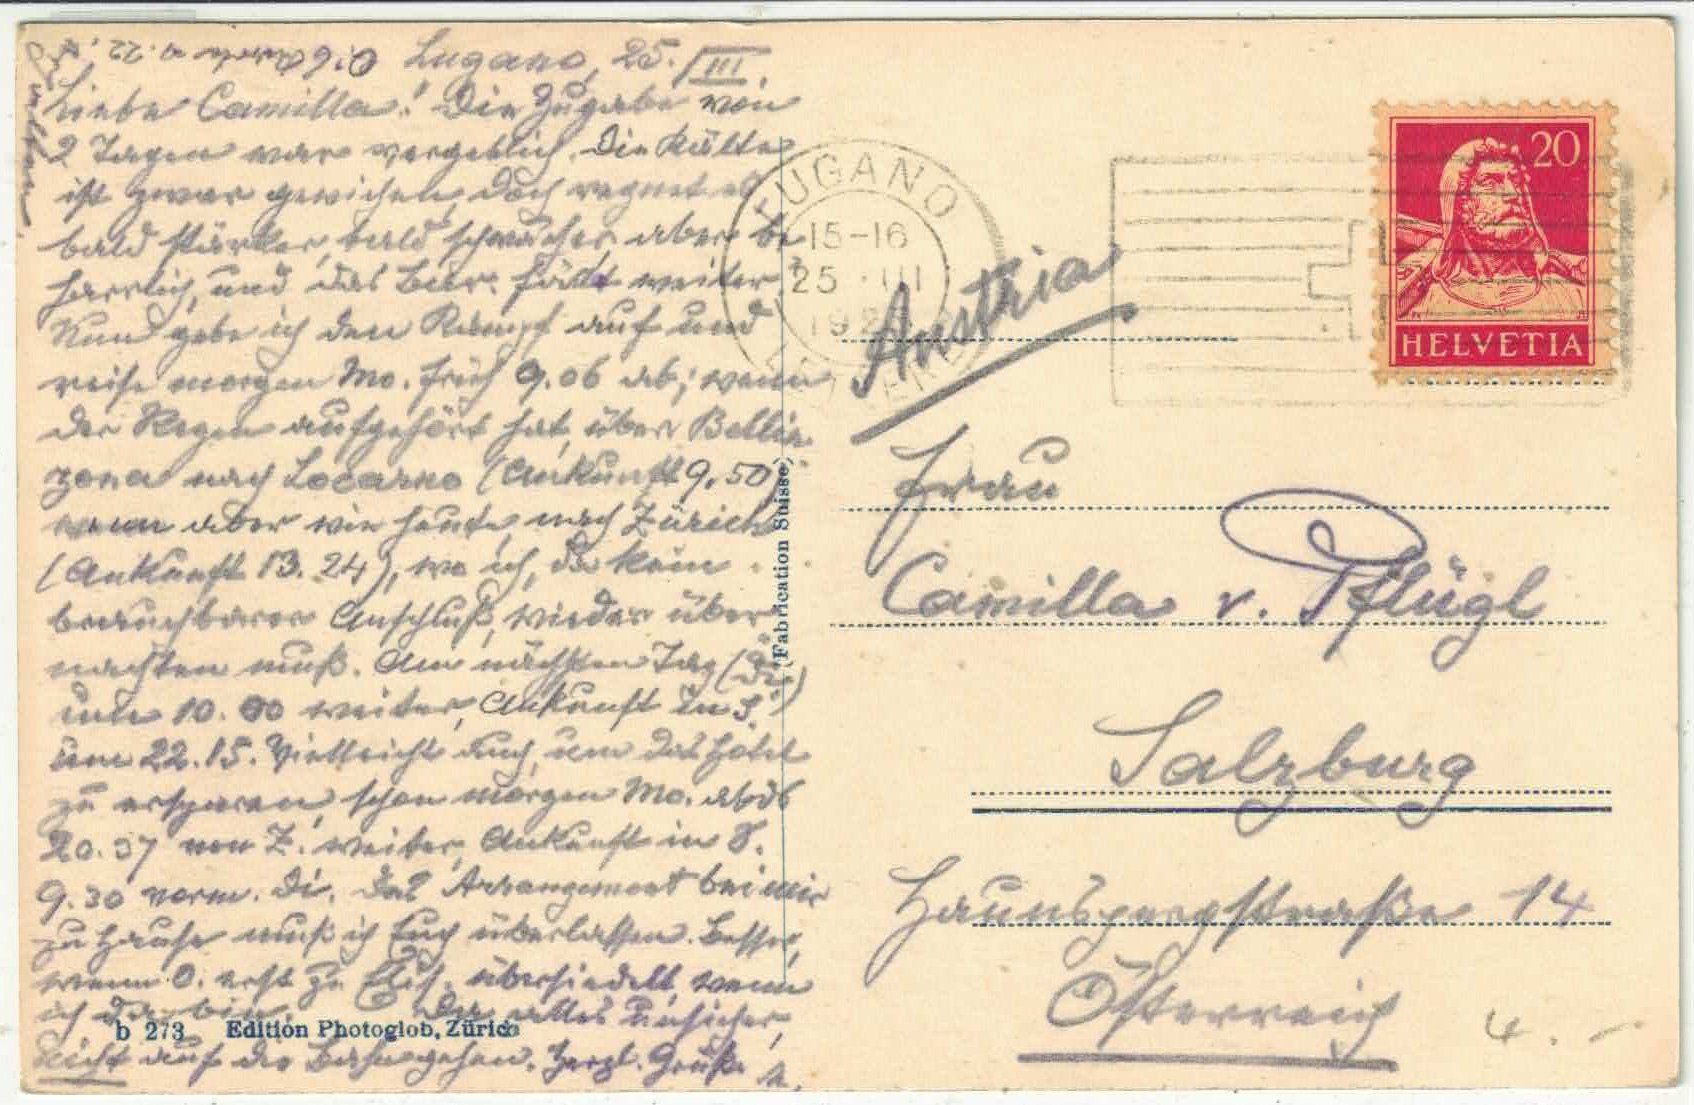 Lugano, 25. III.
Liebe Camilla! Die Zugabe von
2 Tagen war vergeblich. Die Kälte
ist zwar gewichen, doch regnet es,
bald stärker, bald schwächer, aber be
harrlich, und das weiter
Nun gebe ich den Kampf auf und
reise morgen Mo. früh 9.06 ab; wenn
der Regen aufgehört hat, über Bellin
zona nach Locarno (Ankunft 9.50)
wenn aber wie heute, nach Zürich
(Ankunft 13.24), wo ich, da kein
brauchbarer Anschluß, wieder über
nachten muß. Am nächsten Tag (Di)
um 10.00 weiter, Ankunft in S.
um 22.15. Vielleicht auch, um das Hotel
zu ersparen, schon morgen Mo. abds
20.37 von Z. weiter, Ankunft in S.
9.30 vorm. Di. Das Arrangement bei mir
zu Hause muß ich Euch überlassen. Besser,
wenn O. erst zu übersiedelt, wenn
ich da bin. Da alles unsicher,
nicht auf die Bahn gehen. Herzl. Grüße
b 273 Edition Photoglob, Zürich
(Fabrication Suisse)
LUGANO
15-16
25 . III
HELVETIA
20
Austria
Frau
Camilla v. Pflügl
Salzburg
Haunspergstraße 14
Österreich
4.-